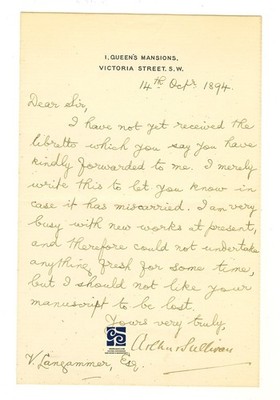 1, QUEEN'S MANSIONS,
VICTORIA STREET. S.W.
14th Octr 1894.
Dear Sir,
I have not yet received the
libretto which you say you have
kindly forwarded to me. I merely
write this to let you know in
case it has miscarried. I am very
busy with new works at present,
and therefore could not undertake
anything fresh for some time,
but I should not like your
manuscript to be lost.
Yours very truly,
Arthur Sullivan
V. Langammer, Esq.